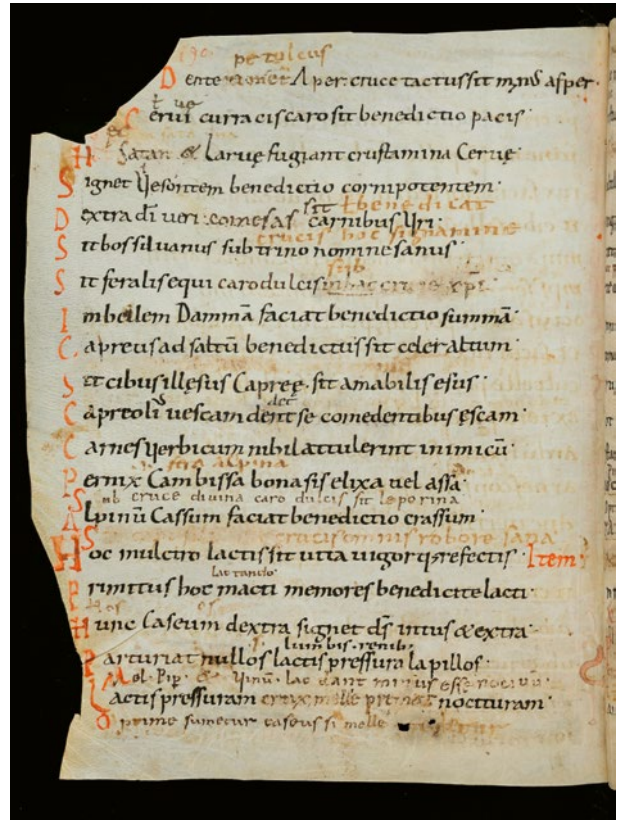 petulcus
Dente Aper. cruce tactus sit m̄nꝰ asper·
Cerui curracis caro sit benedictio pacis·
Hac Satan & Larvę fugiant crustamina Cervę·
Signet Yesontem benedictio cornipotentem·
sit benedicat
Dextra dī veri comes as carnibus Uri·
crucis hoc signamine
Sit bos silvanus sub trino nomine sanus·
sub
Sit feralis equi caro dulcis in hac cruce xp̄i·
Imbellem Dammā faciat benedictio summā·
Capreus ad saltū benedictus sit celer altum·
Sit cibus illęsus Capreę· sit amabilis esus·
det
Capreoli vescam dent se comedentibus ęscam·
Carnes Verbicum nihil attulerint inimicū·
alpina
Pernix Cambissa bona sis elixa vel assa·
Sub cruce divina caro dulcis sit leporina
Alpinū Cassum faciat benedictio crassum·
crucis omnis robore sana
Hoc mulctro lactis sit vita vigorq; refectis· Item·
lactando·
Primitus hoc macti memores benedicite lacti·
Hunc Caseum dextra signet dś intus & extra·
lumbis· renibꝰ
Parturiat nullos lactis pressura lapillos·
Mel· Pip· & Vinū· lac dant minus esse nocivū·
Lactis pressuram crux melle premat nocituram·
Optime sumetur caseus si melle